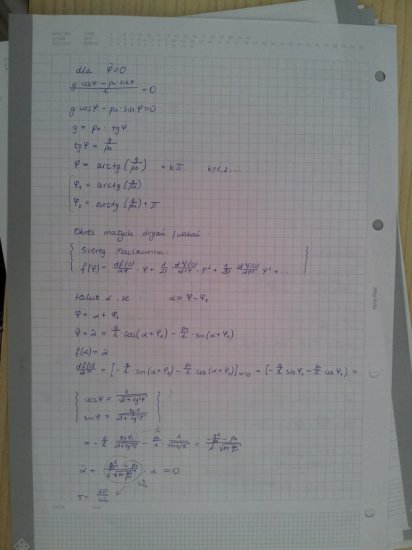 dla φ̈=0
g·cosφ − p₀·sinφ / l = 0
g cosφ − p₀·sinφ=0
g = p₀·tgφ
tgφ = g/p₀
φ = arctg(g/p₀) + kπ k=1,2...
φ₁ = arctg(g/p₀)
φ₂ = arctg(g/p₀)+π
Okres małych drgań /wahań
Szereg Maclaurina:
f(φ) = df(0)/dφ · φ + 1/2! d²f(0)/dφ² · φ² + 1/3! d³f(0)/dφ³ φ³ + ...
takie α, że : α = φ−φ₁
φ = α + φ₁
φ̈ = α̈ = g/l · cos(α+φ₁) − p₀/l · sin(α+φ₁)
f(α) = α̈
df(0)/dα = [−g/l sin(α+φ₁) − p₀/l cos(α+φ₁)]α=0 = (−g/l sinφ₁ − p₀/l cosφ₁) =
cosφ = 1/√(1+tg²φ)
sinφ = tgφ/√(1+tg²φ)
= −g/l tgφ₁/√(1+tg²φ₁) − p₀/l 1/√(1+tg²φ₁) =
α̈ + · α = 0
T = 2π/ω